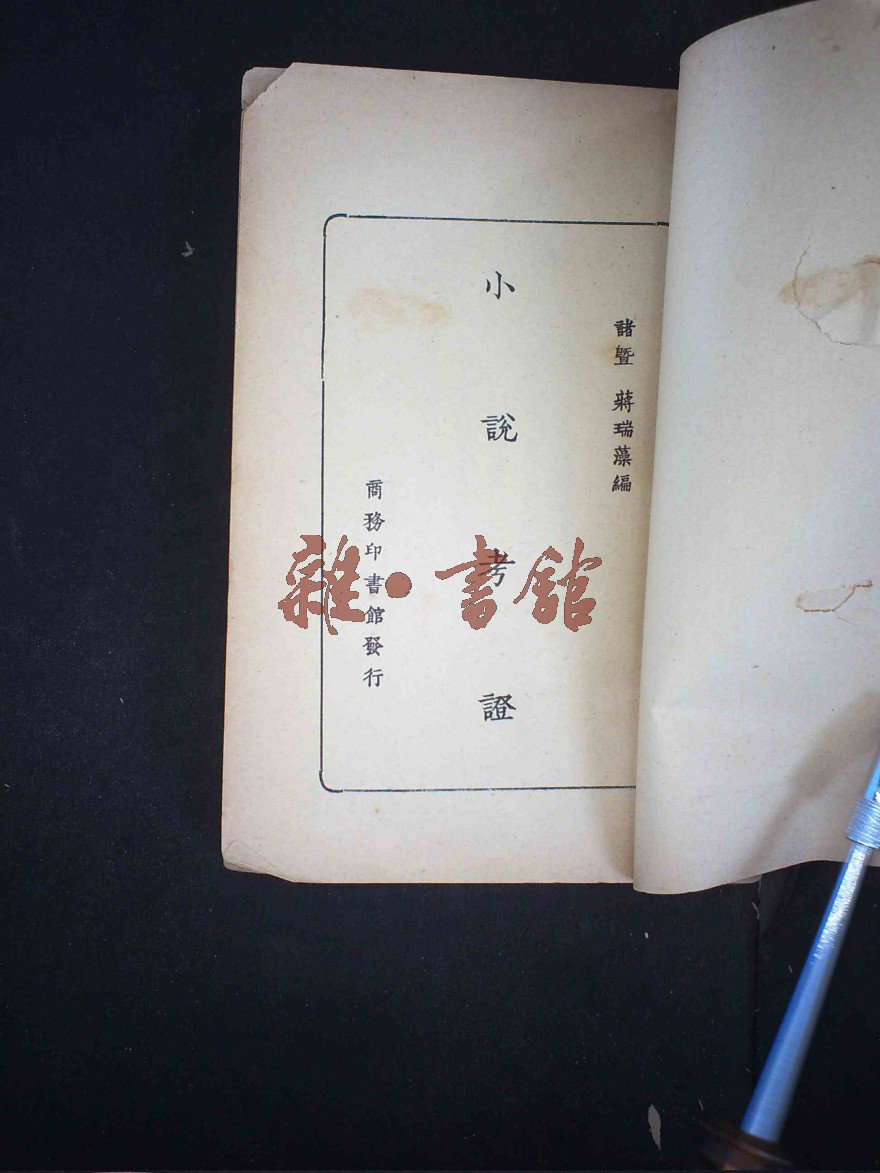 諸暨 蔣瑞藻編
小說考證
商務印書館發行
雜·書館